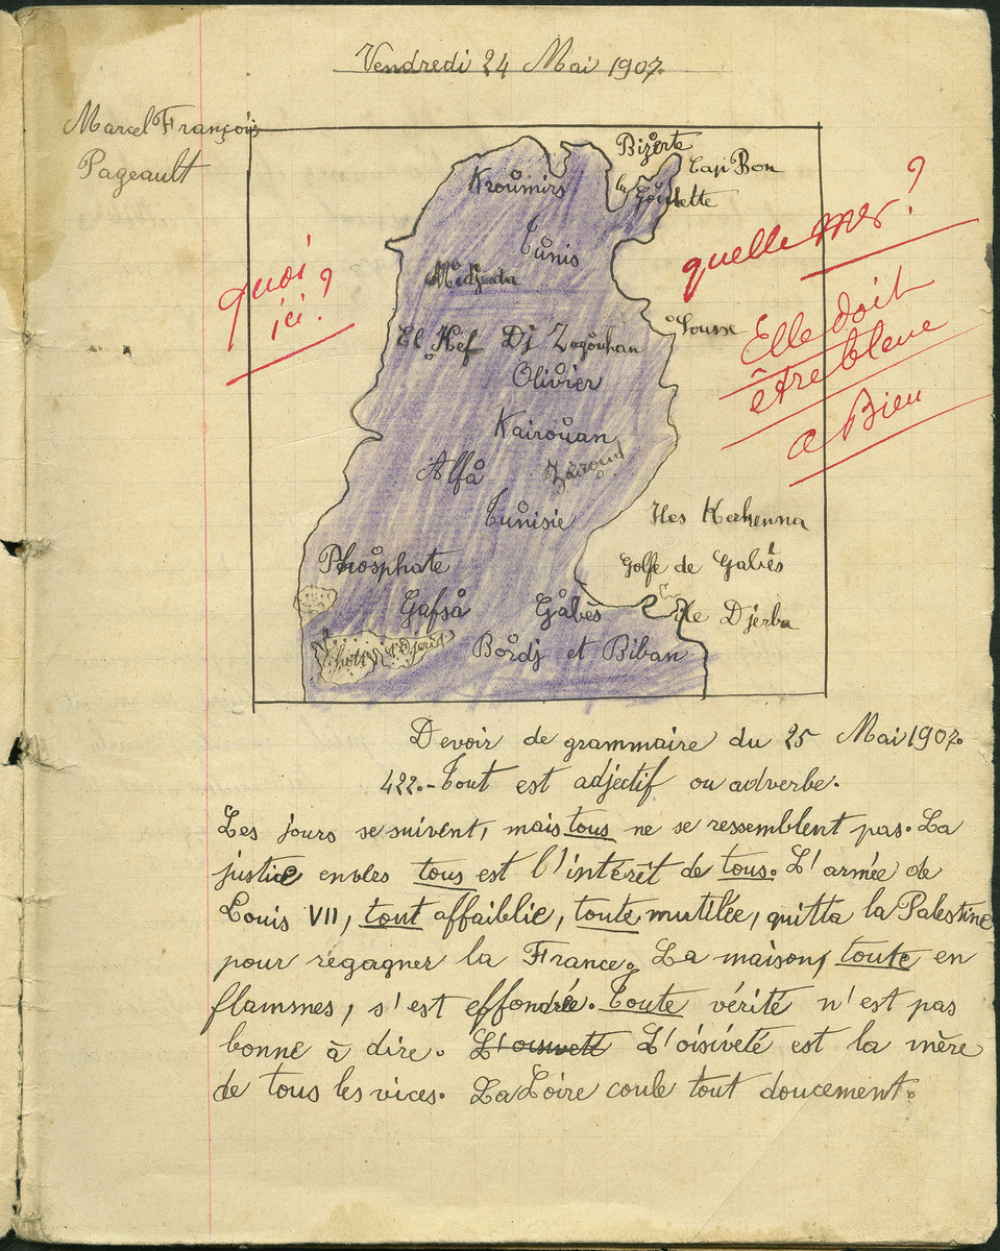 Vendredi 24 Mai 1907.
Marcel François
Pageault
Bizerte
Cap Bon
Kroumirs
la Goulette
Tunis
quelle mer ?
quoi
ici ?
Medjerda
Sousse
El Kef Dj Zagouhan
Elle doit
être bleue
Olivier
a Bieu
Kairouan
Alfa
Zéroud
Tunisie
Iles Kerkenna
Phosphate
Golfe de Gabès
Gafsa
Gabès
Ile Djerba
Chott el Djerid
Bordj et Biban
Devoir de grammaire du 25 Mai 1907.
422.-Tout est adjectif ou adverbe.
Les jours se suivent, mais tous ne se ressemblent pas. La
justice envers tous est l'intérêt de tous. L'armée de
Louis VII, tout affaiblie, toute mutilée, quitta la Palestine
pour regagner la France. La maison, toute en
flammes, s'est effondrée. Toute vérité n'est pas
bonne à dire. L'oisiveté L'oisiveté est la mère
de tous les vices. La Loire coule tout doucement.